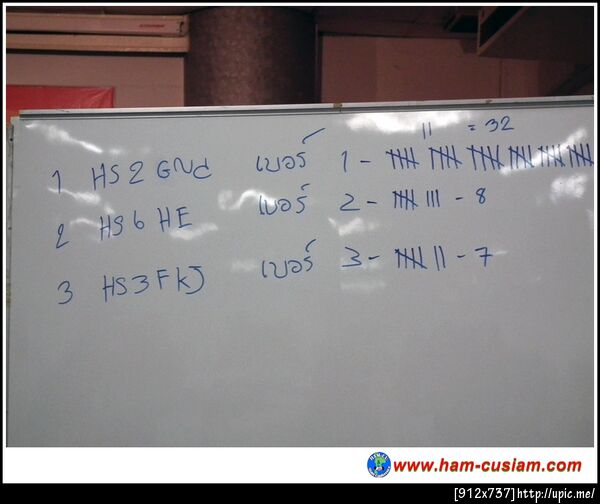 || = 32
1 HS2GNd เบอร์ 1 - 卌 卌 卌 卌 卌 卌
2 HS6HE เบอร์ 2 - 卌 ||| - 8
3 HS3FKJ เบอร์ 3 - 卌 || - 7
www.ham-cusiam.com
[912x737]http://upic.me/